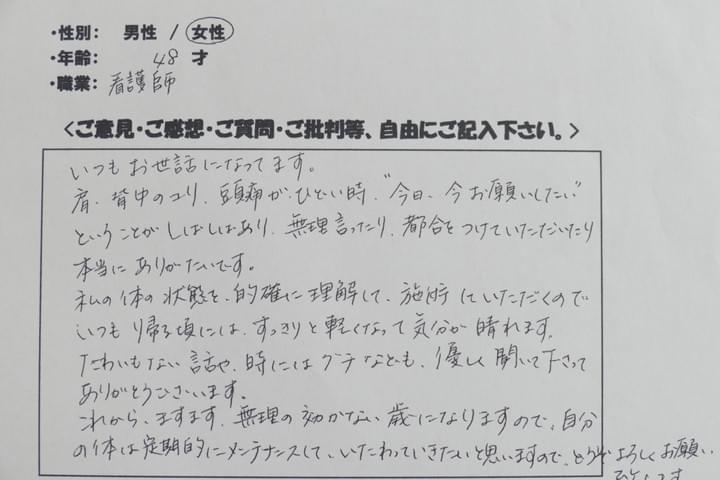 ・性別： 男性 / 女性
・年齢： 48 才
・職業： 看護師
＜ご意見・ご感想・ご質問・ご批判等、自由にご記入下さい。＞
いつもお世話になってます。
肩、背中のコリ、頭痛がひどい時、"今日、今お願いしたい"
ということがしばしばあり、無理言ったり、都合をつけていただいたり
本当にありがたいです。
私の体の状態を、的確に理解して、施術していただくので
いつも帰る頃には、すっきりと軽くなって気分が晴れます。
たわいもない話や、時にはグチなども、優しく聞いて下さって
ありがとうございます。
これから、ますます、無理の効かない歳になりますので、自分
の体は定期的にメンテナンスして、いたわっていきたいと思いますので、どうぞよろしくお願い
致します